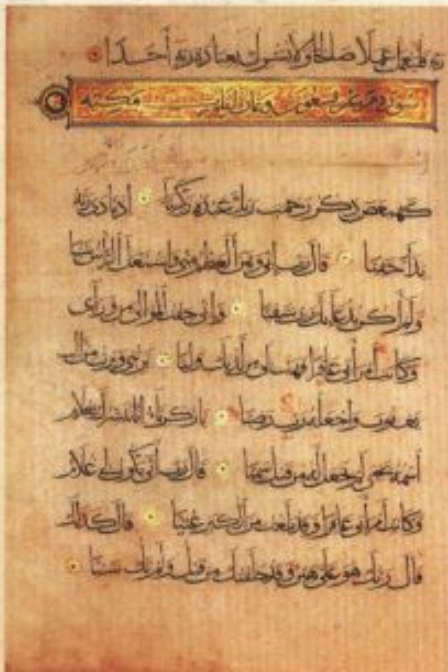 ربه فليعمل عملا صالحا ولا يشرك بعبادة ربه احدا
سورة مريم تسعون وثمان ايات مكية
كهيعص ذكر رحمت ربك عبده زكريا اذ نادى ربه
نداء خفيا قال رب اني وهن العظم مني واشتعل الرأس شيبا
ولم اكن بدعائك رب شقيا واني خفت الموالي من ورائي
وكانت امرأتي عاقرا فهب لي من لدنك وليا يرثني ويرث من آل
يعقوب واجعله رب رضيا يا زكريا انا نبشرك بغلام
اسمه يحيى لم نجعل له من قبل سميا قال رب انى يكون لي غلام
وكانت امرأتي عاقرا وقد بلغت من الكبر عتيا قال كذلك
قال ربك هو علي هين وقد خلقتك من قبل ولم تك شيئا